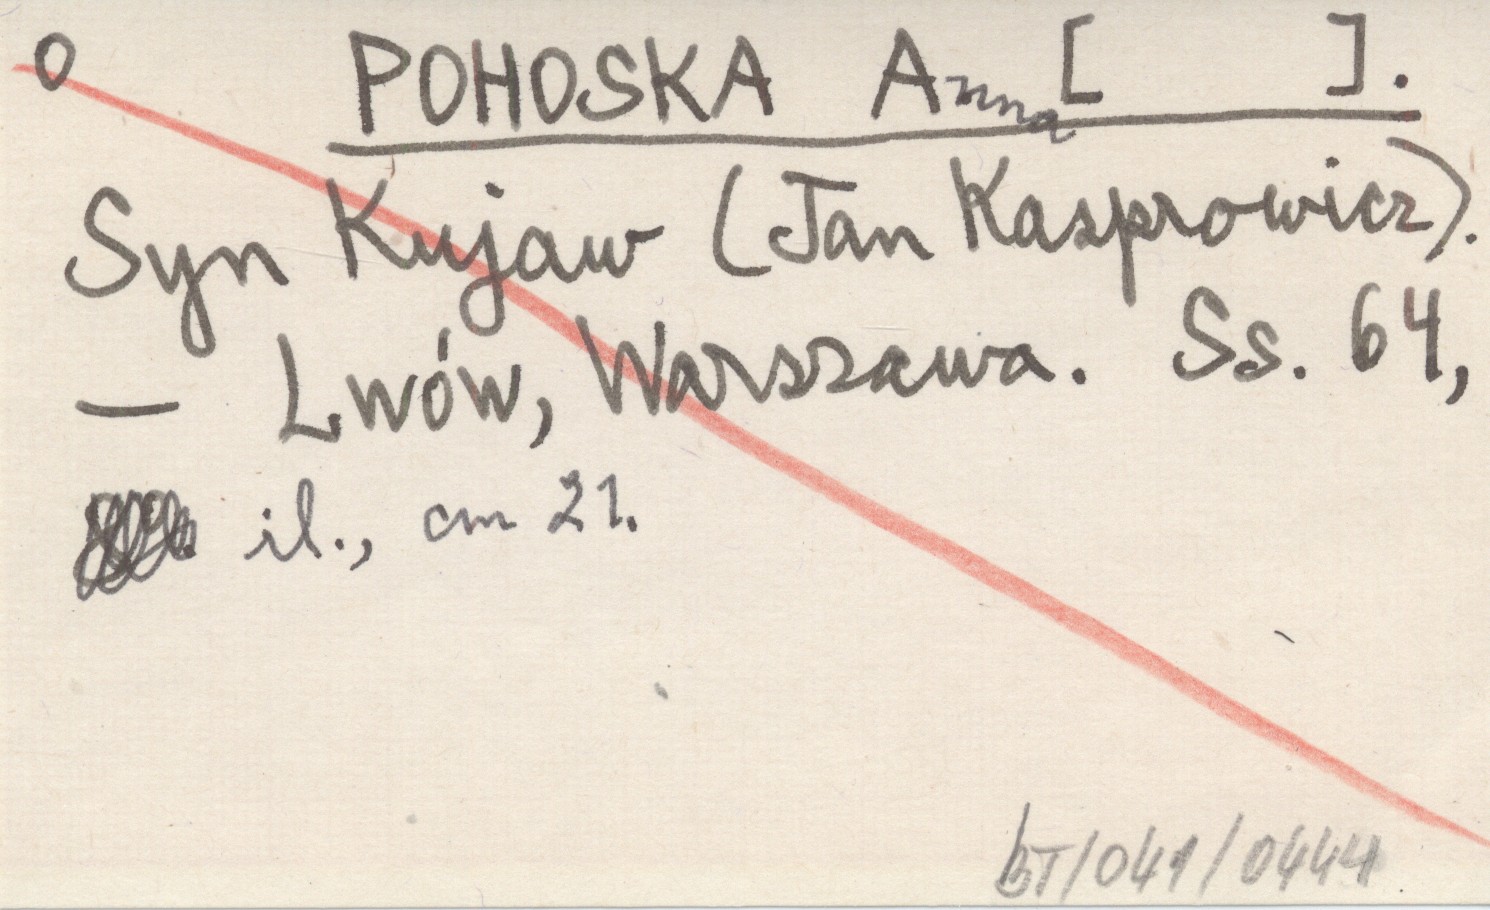 O POHOSKA Anna [ ].
Syn Kujaw (Jan Kasprowicz).
— Lwów, Warszawa. Ss. 64,
il., cm 21.
BT/041/0444